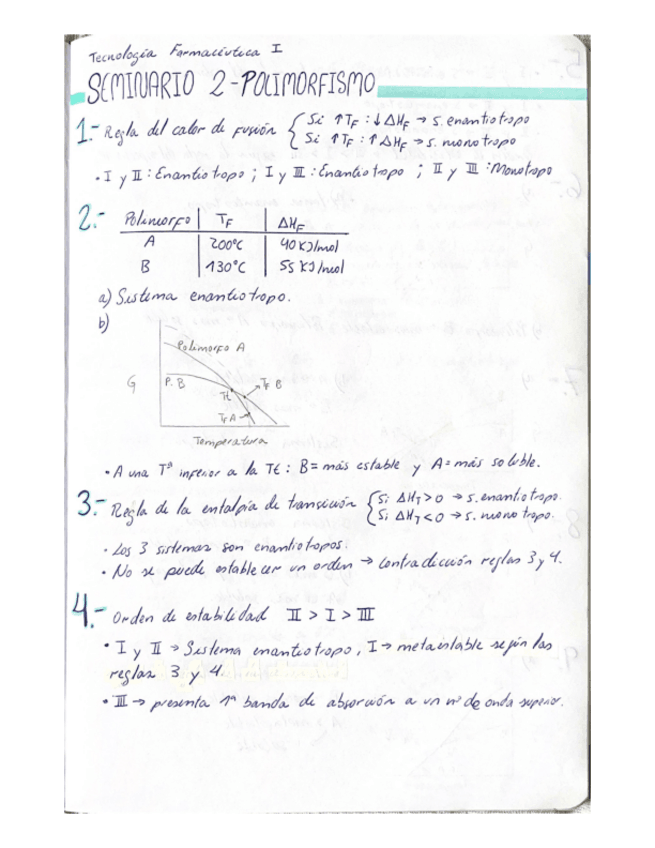 Tecnología Farmacéutica I
SEMINARIO 2 - POLIMORFISMO
1.- Regla del calor de fusión { Si ↑TF : ↓ΔHF → s. enantiotropo
Si ↑TF : ↑ΔHF → s. monotropo
• I y II : Enantiotropo ; I y III : Enantiotropo ; II y III : Monotropo
2.- Polimorfo | TF | ΔHF
A | 200°C | 40 KJ/mol
B | 130°C | 55 KJ/mol
a) Sistema enantiotropo.
b)
Polimorfo A
G P. B Tt TF B
TF A
Temperatura
• A una Tª inferior a la Tt : B = más estable y A = más soluble.
3.- Regla de la entalpía de transición { Si ΔHT > 0 → s. enantiotropo.
Si ΔHT < 0 → s. monotropo.
• Los 3 sistemas son enantiotropos.
• No se puede establecer un orden → contradicción reglas 3 y 4.
4.- Orden de estabilidad II > I > III
• I y II → Sistema enantiotropo, I → metaestable según las
reglas 3 y 4.
• III → presenta 1ª banda de absorción a un nº de onda superior.